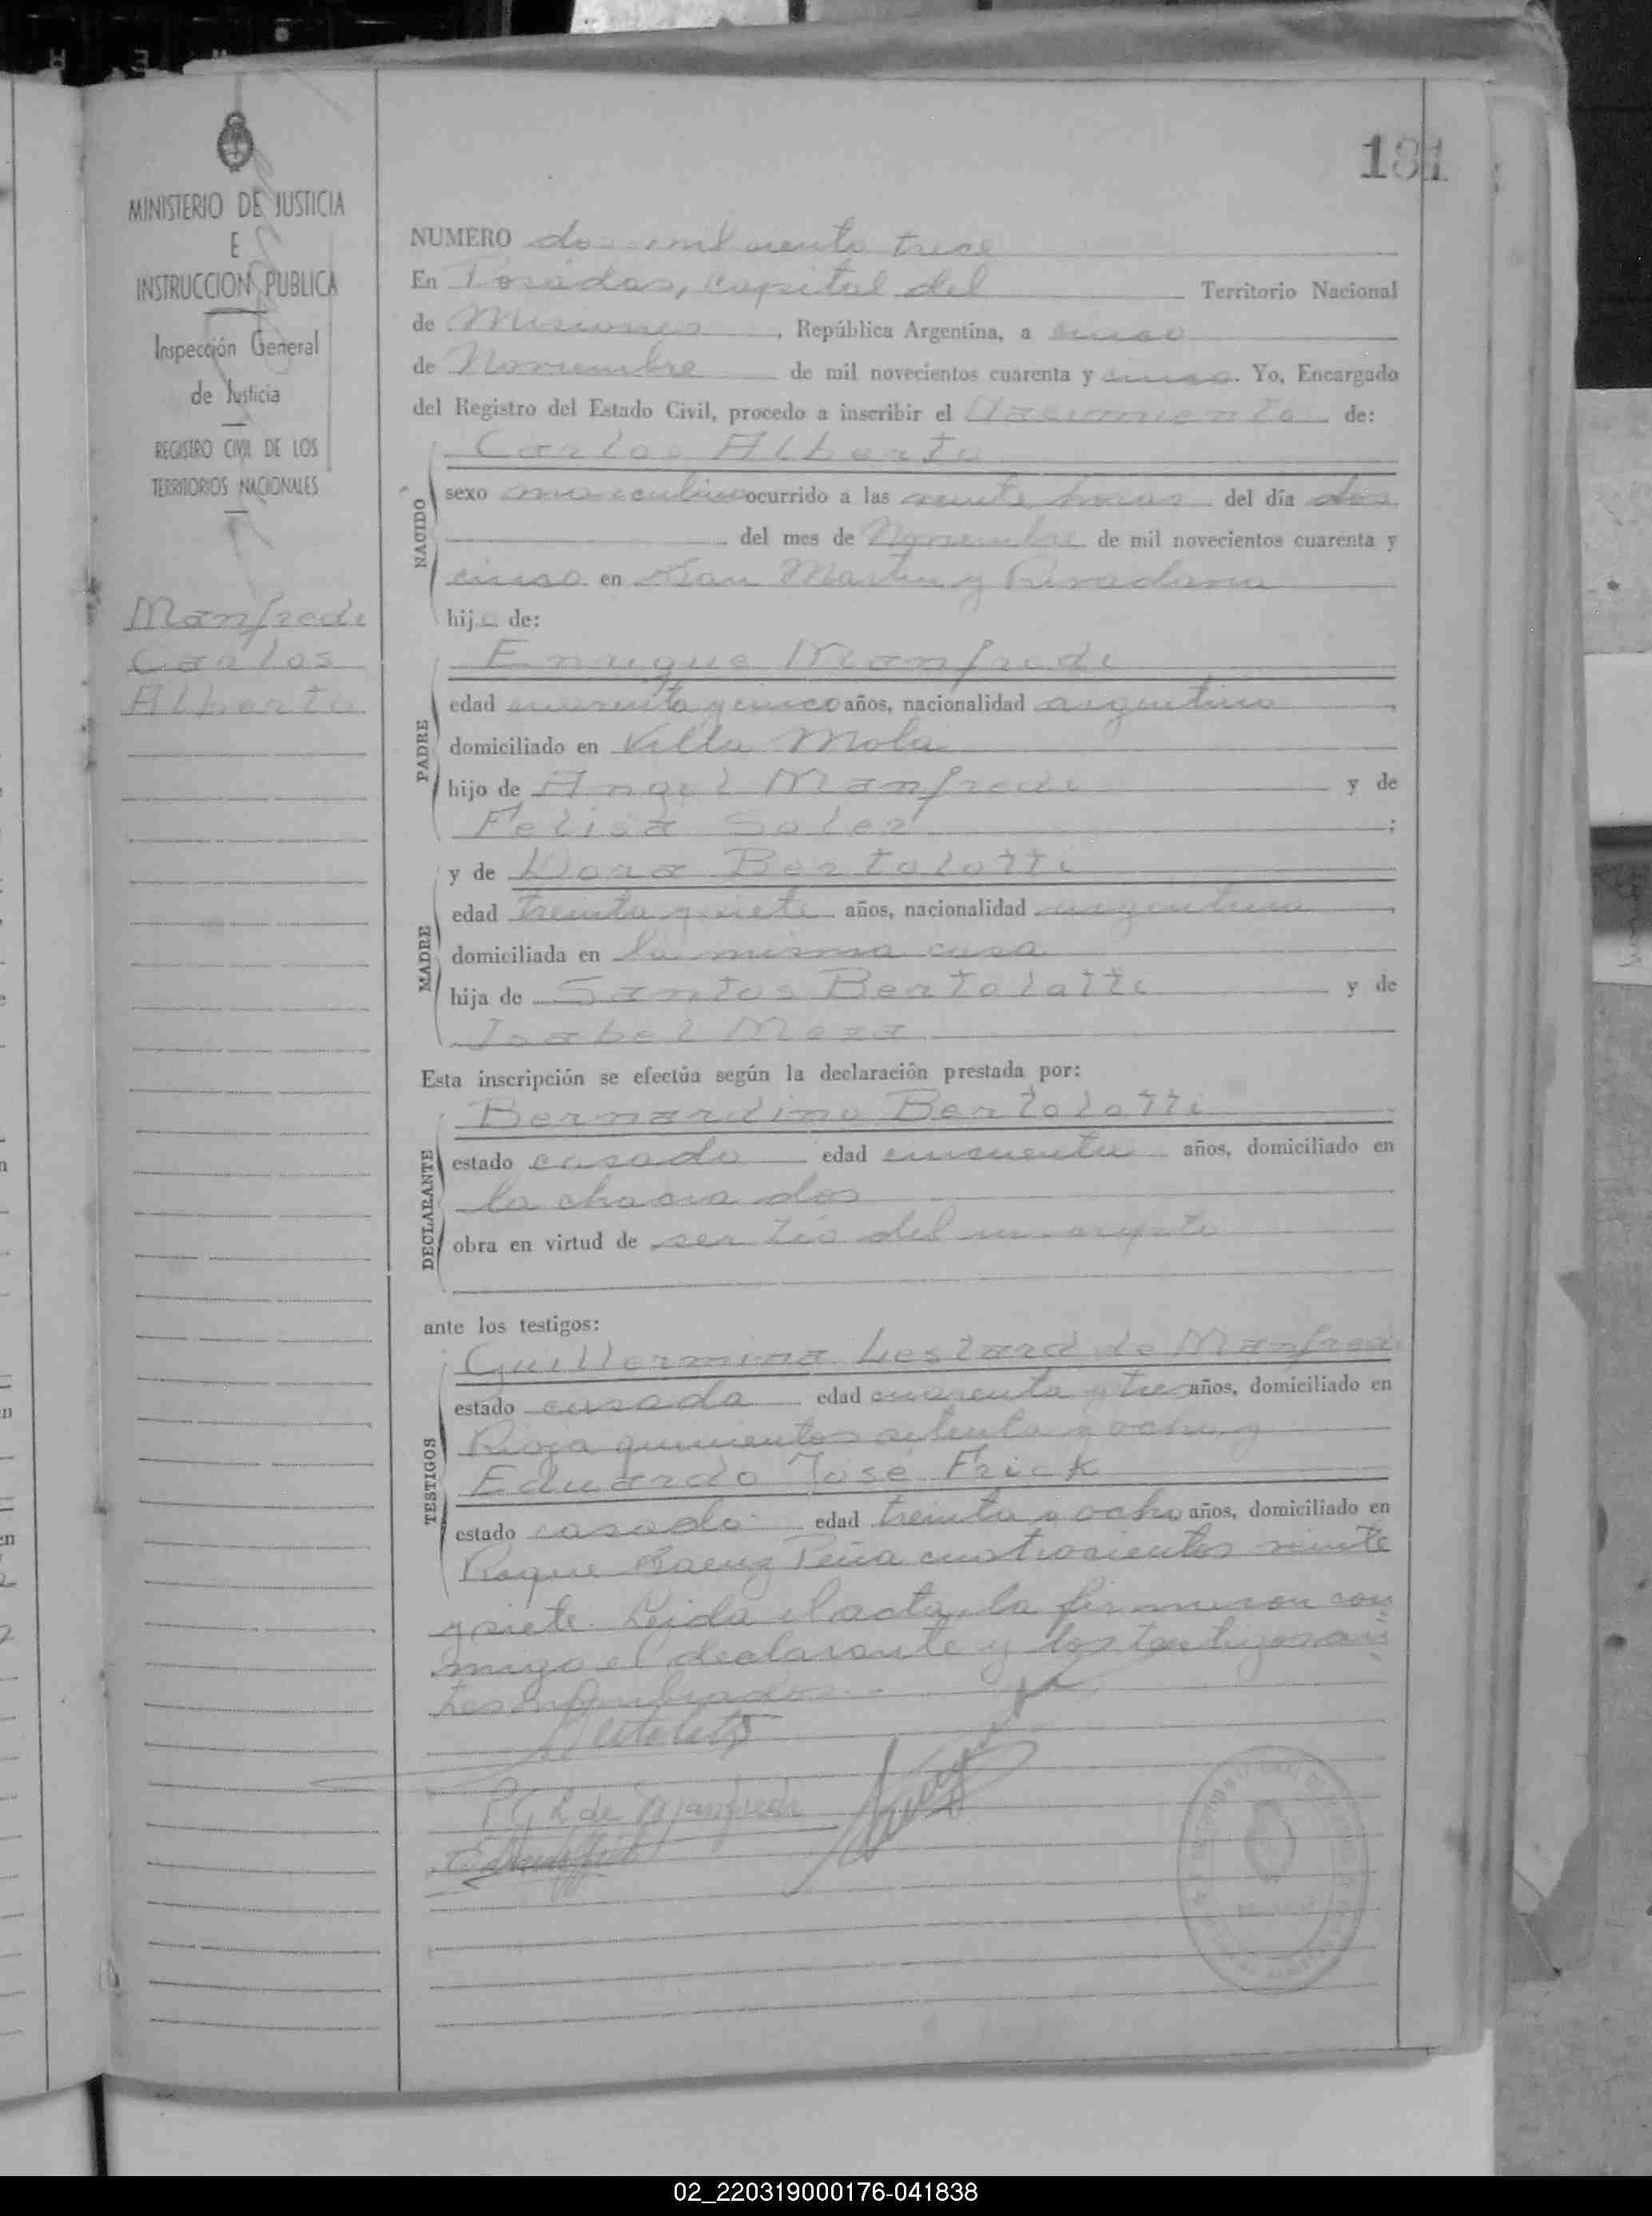 181
MINISTERIO DE JUSTICIA
E
INSTRUCCION PUBLICA
Inspección General
de Justicia
REGISTRO CIVIL DE LOS
TERRITORIOS NACIONALES
Manfredi
Carlos
Alberto
NUMERO dos mil ciento trece
En Posadas, capital del Territorio Nacional
de Misiones, República Argentina, a cinco
de Noviembre de mil novecientos cuarenta y cinco. Yo, Encargado
del Registro del Estado Civil, procedo a inscribir el Nacimiento de:
NACIDO
Carlos Alberto
sexo masculino ocurrido a las veinte horas del día dos
del mes de Noviembre de mil novecientos cuarenta y
cinco en San Martin y Rivadavia
hijo de:
PADRE
Enrique Manfredi
edad cuarenta y cinco años, nacionalidad argentino
domiciliado en Villa Mola
hijo de Angel Manfredi y de
Felisa Soler ;
MADRE
y de Dora Bertolotti
edad treinta y siete años, nacionalidad argentina
domiciliada en la misma casa
hija de Santos Bertolotti y de
Isabel Meza
Esta inscripción se efectúa según la declaración prestada por:
DECLARANTE
Bernardino Bertolotti
estado casado edad cincuenta años, domiciliado en
la chacra dos
obra en virtud de ser tio del inscripto
ante los testigos:
TESTIGOS
Guillermina Lestard de Manfredi
estado casada edad cuarenta y tres años, domiciliado en
Rioja quinientos setenta y ocho, y
Eduardo José Frick
estado casado edad treinta y ocho años, domiciliado en
Roque Saenz Peña cuatrocientos veinte
y siete. Leida el acta, la firmaron con
migo el declarante y los testigos an
tes nombrados.-
Bertolotti
P G L de Manfredi
02_220319000176-041838